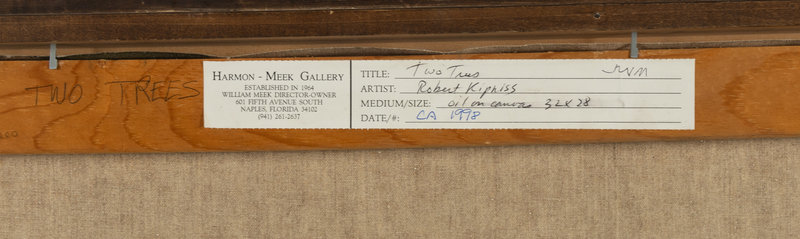 TWO TREES
HARMON - MEEK GALLERY
ESTABLISHED IN 1964
WILLIAM MEEK DIRECTOR-OWNER
601 FIFTH AVENUE SOUTH
NAPLES, FLORIDA 34102
(941) 261-2637
TITLE: Two Trees
ARTIST: Robert Kipniss
MEDIUM/SIZE: oil on canvas 32 x 28
DATE/#: CA 1998